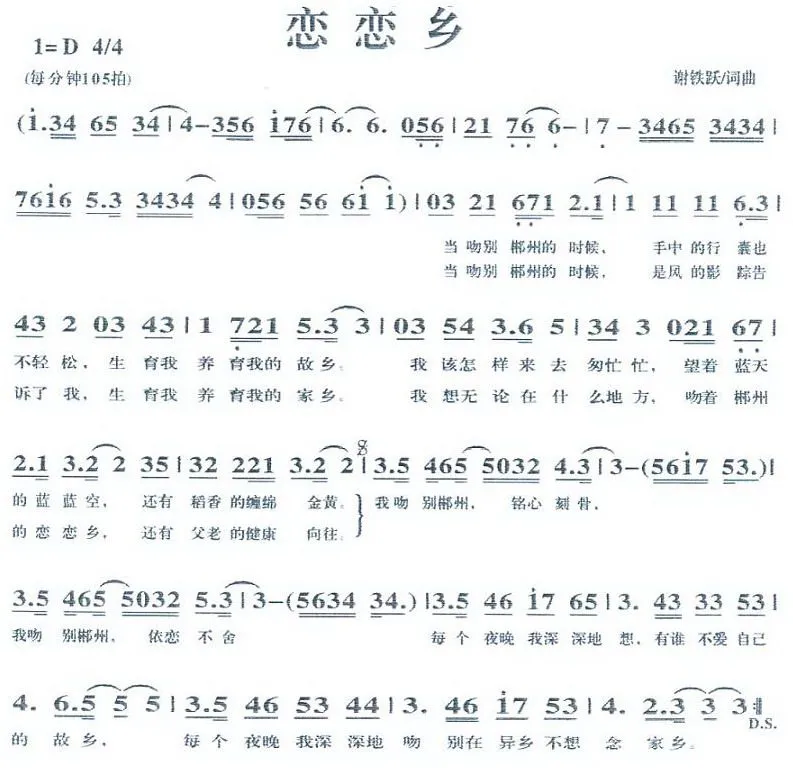 恋恋乡
1=D 4/4
(每分钟105拍)
谢铁跃/词曲
(i.34 65 34|4-356 i76|6. 6. 056|21 76 6-|7-3465 3434|
76i6 5.3 3434 4|056 56 6i i)|03 21 671 2.1|1 11 11 6.3|
当吻别 郴州的 时候, 手中 的行 囊也
当吻别 郴州的 时候, 是风 的影 踪告
43 2 03 43|1 721 5.3 3|03 54 3.6 5|34 3 021 67|
不轻 松, 生 育我 养 育我的 故乡。 我 该怎 样来 去 匆忙 忙, 望着 蓝天
诉了 我, 生 育我 养 育我的 家乡。 我 想无 论在 什 么地 方, 吻着 郴州
2.1 3.2 2 35|32 221 3.2 2|3.5 465 5032 4.3|3-(56i7 53.)|
的蓝 蓝空, 还有 稻香 的缠绵 金黄。 我吻 别郴州, 铭心 刻骨,
的恋 恋乡, 还有 父老 的健康 向往。
3.5 465 5032 5.3|3-(5634 34.)|3.5 46 i7 65|3. 43 33 53|
我吻 别郴州, 依恋 不舍 每个 夜晚 我深 深地 想, 有谁 不爱 自己
4. 6.5 5 5|3.5 46 53 44|3. 46 i7 53|4. 2.3 3 3:‖
D.S.
的 故乡, 每个 夜晚 我深 深地 吻 别在 异乡 不想 念 家乡。